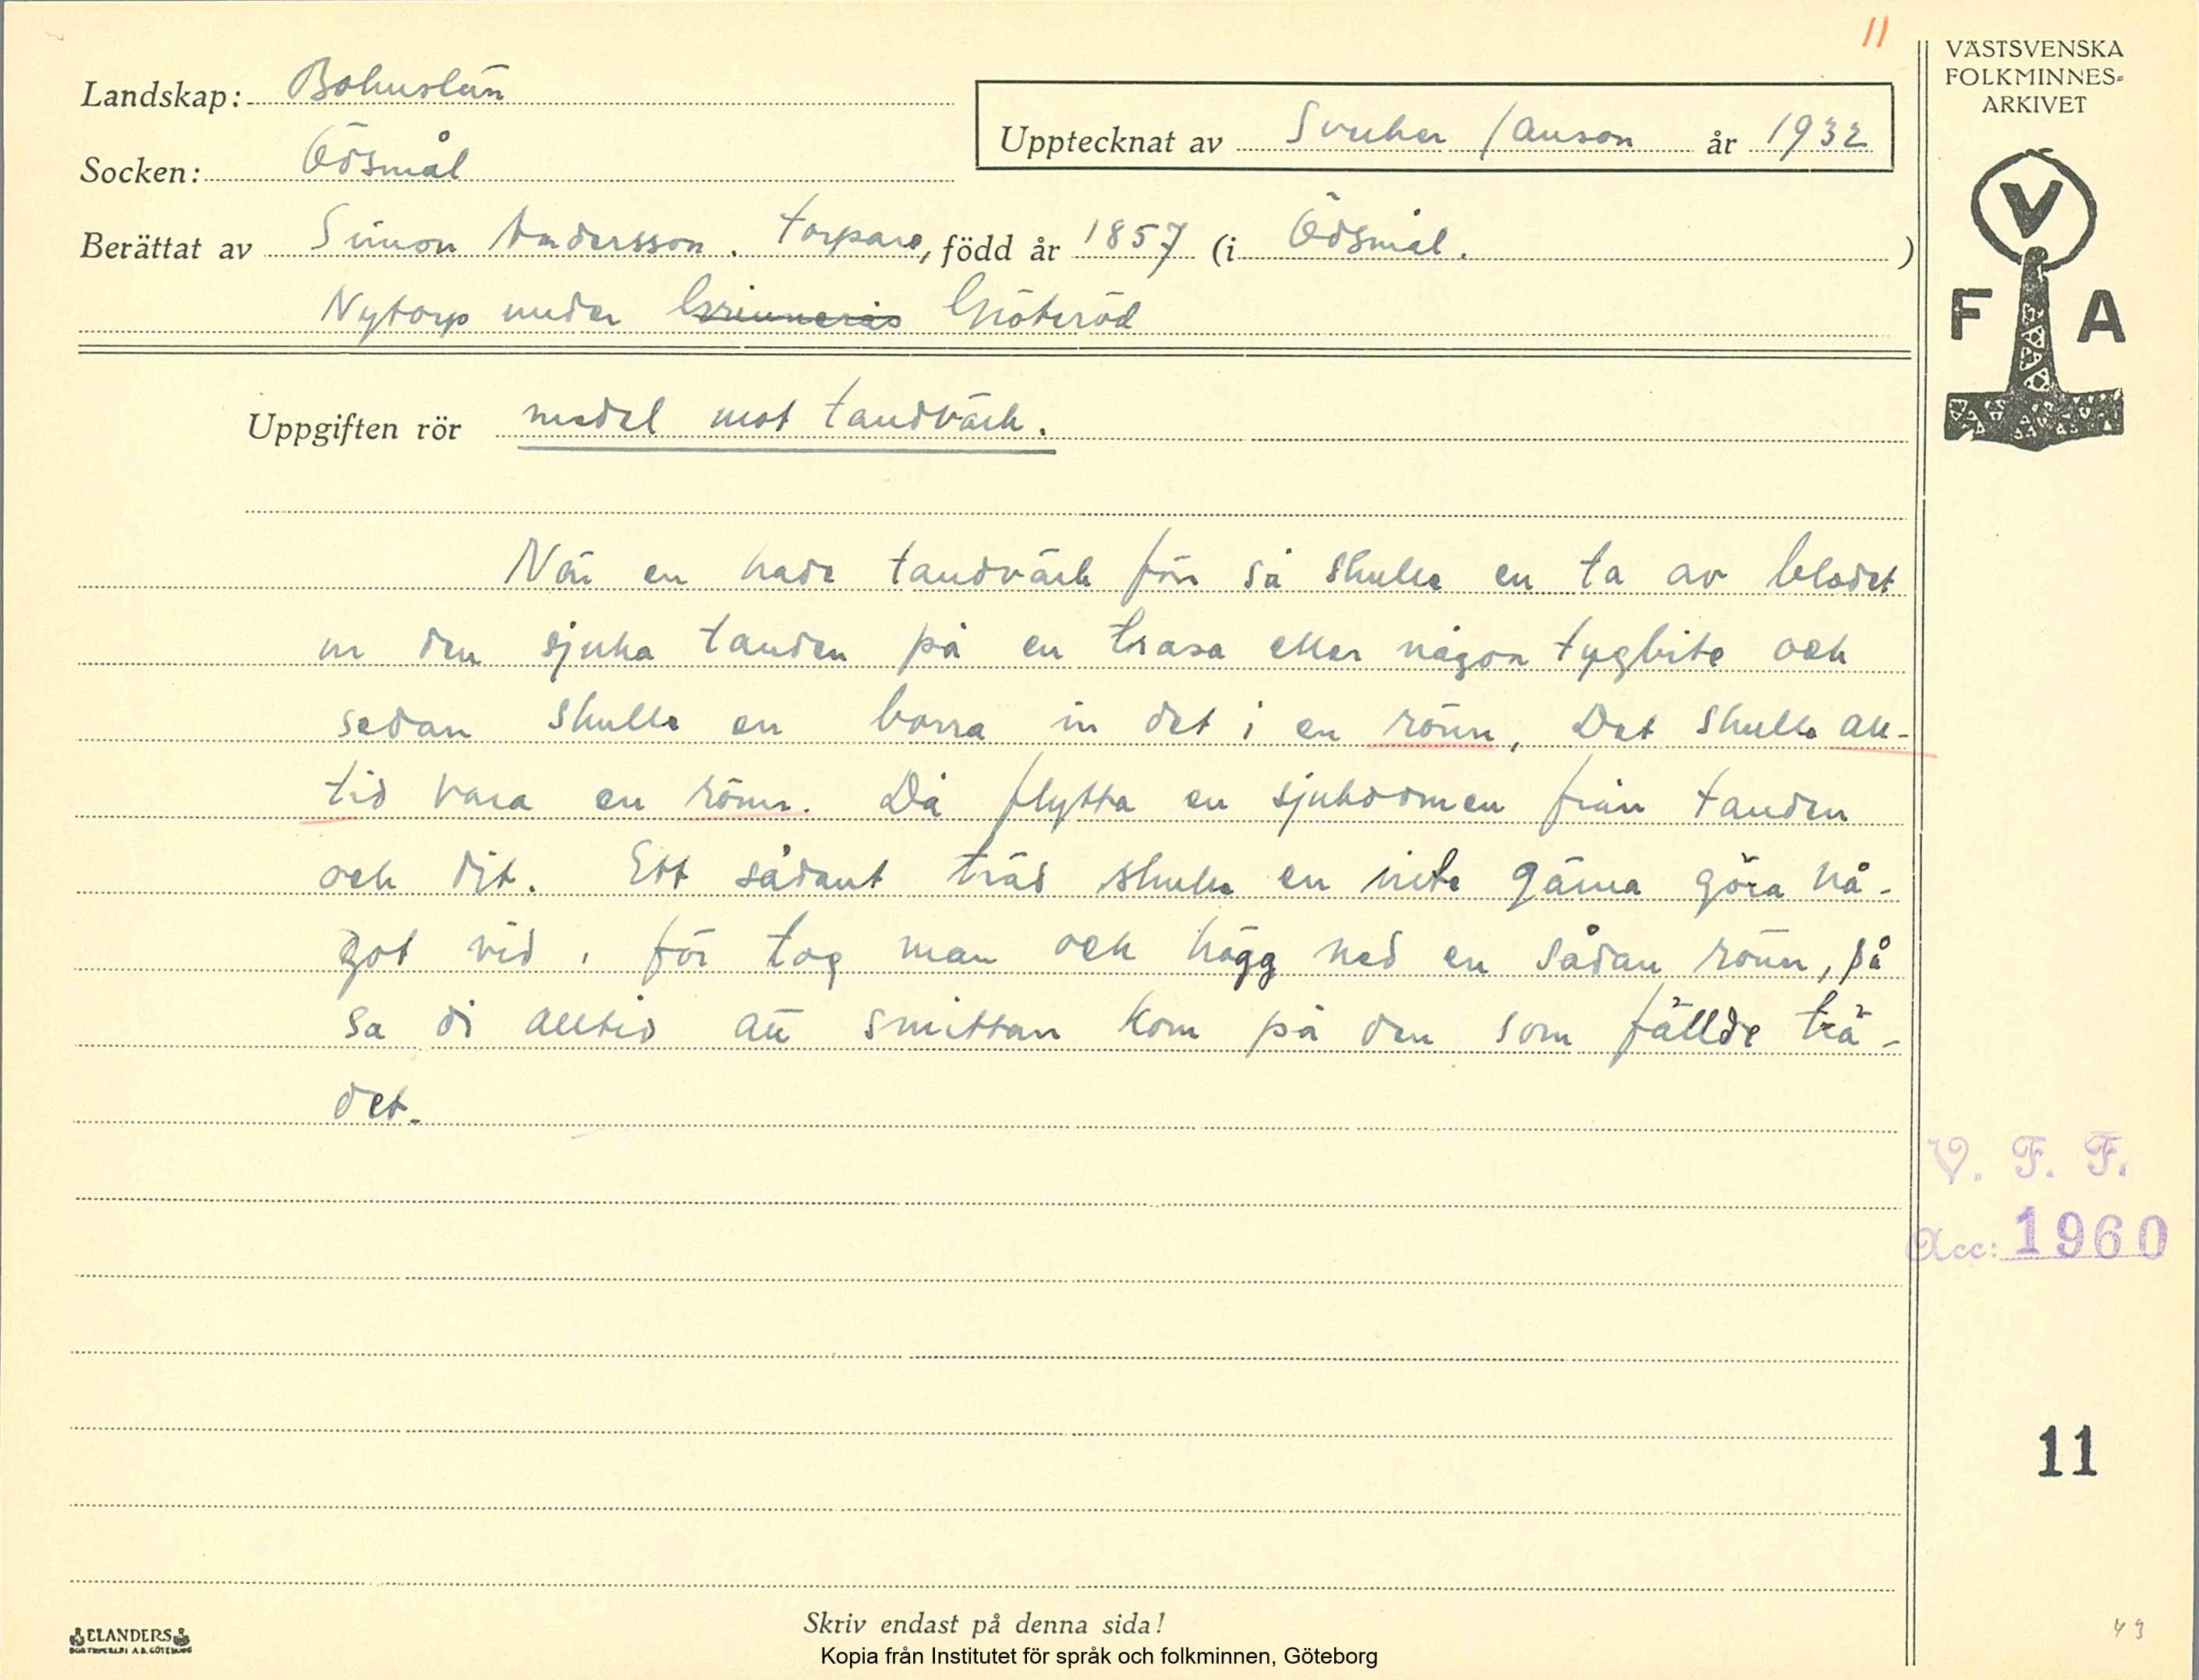 11
VÄSTSVENSKA
FOLKMINNES-
ARKIVET
Landskap: Bohuslän
Upptecknat av Sverker Janson år 1932
Socken: Ödsmål
Berättat av Simon Andersson. torpare, född år 1857 (i Ödsmål. )
Nytorp under Grinnerås Gröteröd
V
F A
Uppgiften rör medel mot tandvärk.
När en hade tandvärk förr så skulle en ta av blodet
ur den sjuka tanden på en trasa eller någon tygbite och
sedan skulle en borra in det i en rönn. Det skulle all-
tid vara en rönn. Då flytta en sjukdomen från tanden
och dit. Ett sådant träd skulle en inte gärna göra nå-
got vid, för tog man och högg ned en sådan rönn, så
sa di alltid att smittan kom på den som fällde trä-
det.
V. F. F.
Acc: 1960
11
ELANDERS
BOKTRYCKERI A.B. GÖTEBORG
Skriv endast på denna sida!
Kopia från Institutet för språk och folkminnen, Göteborg
43